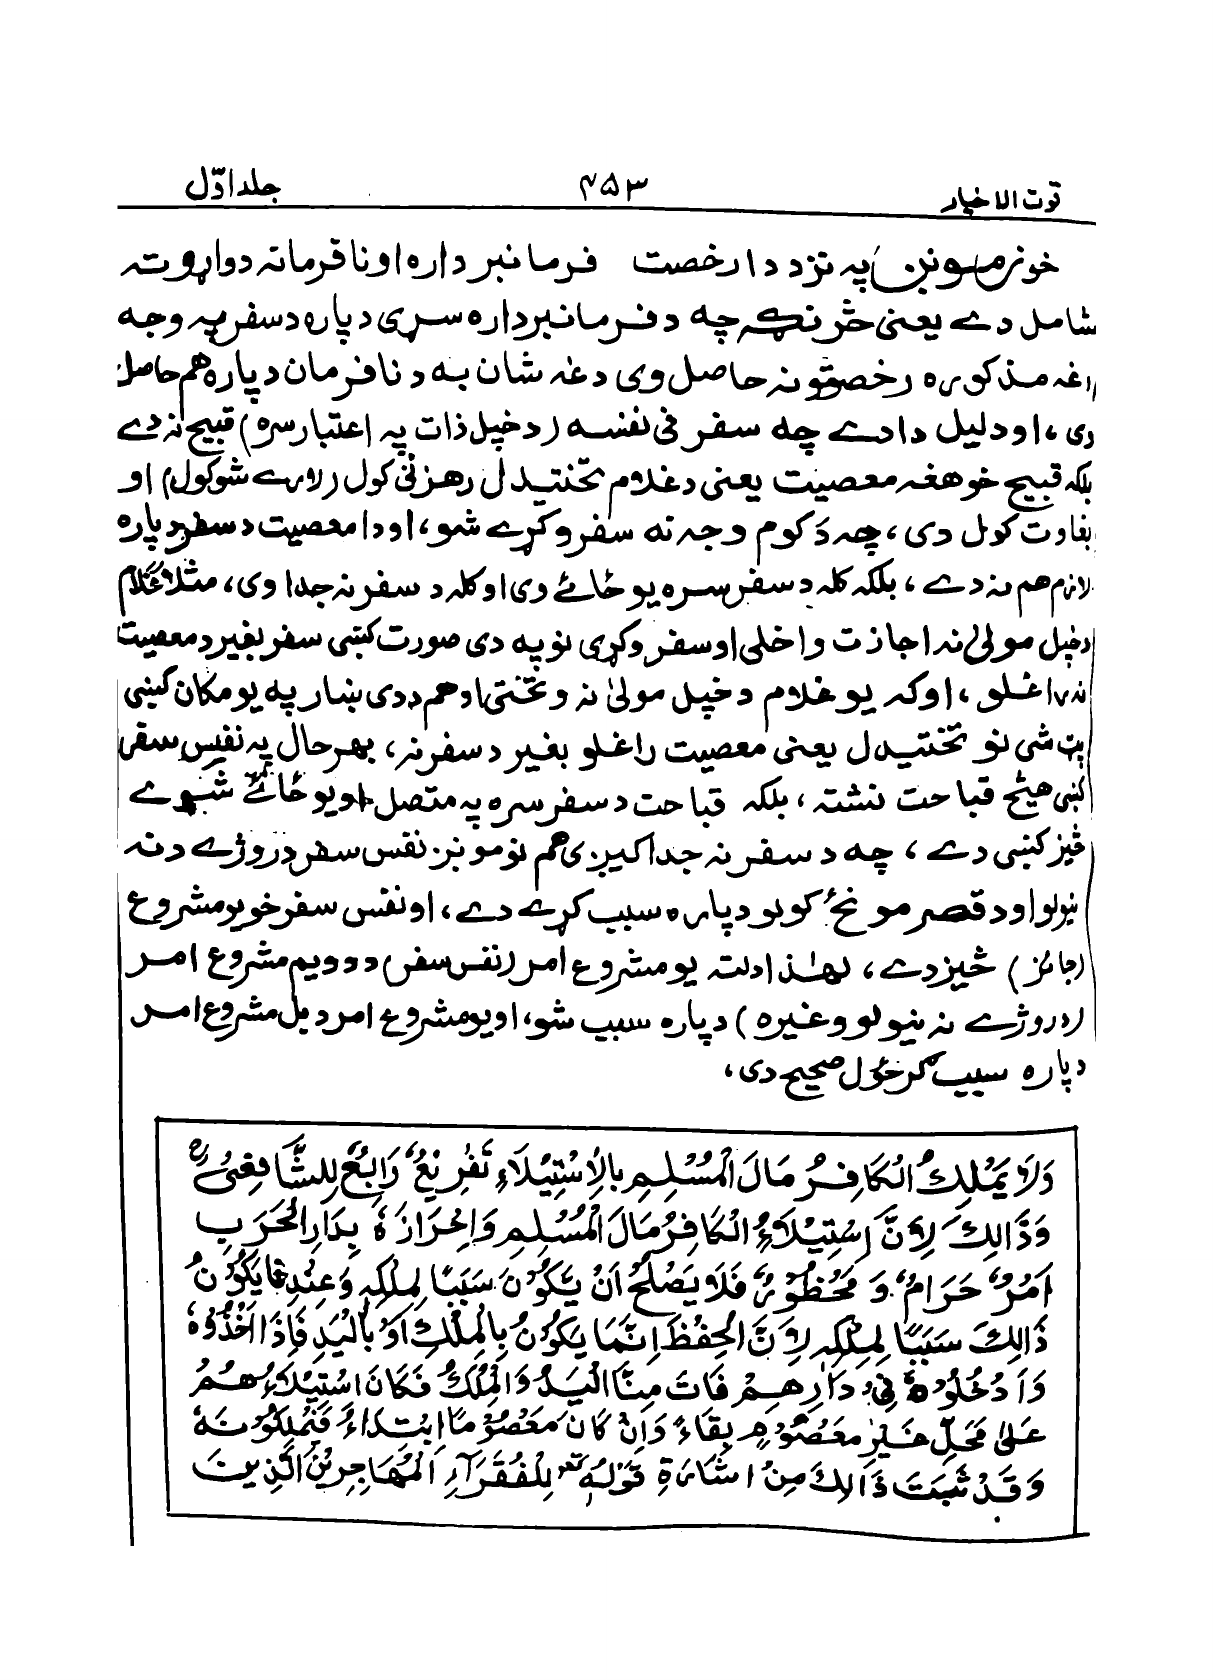 قوت الاخیار ۴۵۳ جلد اوّل
خو زمونږ په نزد دا رخصت فرمانبرداره او نافرمانه دواړو ته
شامل دے یعنی څرنګه چه د فرمانبرداره سړی دپاره د سفر په وجه
اغه مذکوره رخصتونه حاصل وی دغه شان به د نافرمان دپاره هم حاصل
وی، او دلیل دادے چه سفر فی نفسه (د خپل ذات په اعتبار سره) قبیح نه دے
بلکه قبیح خو هغه معصیت یعنی د غلام تختیدل رهزنی کول (لارے شوکول) او
بغاوت کول دی، چه د کوم وجه نه سفر وکړے شو، او دا معصیت د سفر دپاره
لازم هم نه دے، بلکه کله د سفر سره یو ځائے وی او کله د سفر نه جدا وی، مثلا غلام
دخپل مولیٰ نه اجازت واخلی او سفر وکړی نو په دی صورت کښی سفر بغیر د معصیت
نه راغلو، او که یو غلام د خپل مولیٰ نه وتختی او هم ددی ښار په یو مکان کښی
پټ شی نو تختیدل یعنی معصیت راغلو بغیر د سفر نه، بهرحال په نفس سفر
کښی هیڅ قباحت نشته، بلکه قباحت د سفر سره په متصل او یو ځائے شوے
څیز کښی دے، چه د سفر نه جدا کیږی هم نو مونږ نفس سفر د روژے د نه
نیولو او د قصر مونځ کولو دپاره سبب کړے دے، او نفس سفر خو یو مشروع
(جائز) څیز دے، لهٰذا دلته یو مشروع امر (نفس سفر) د دوویم مشروع امر
(د روژے نه نیولو وغیره) دپاره سبب شو، او یو مشروع امر د بل مشروع امر
دپاره سبب ګرځول صحیح دی،
وَلَا يَمْلِكُ الْكَافِرُ مَالَ الْمُسْلِمِ بِالْاِسْتِيْلَاءِ تَفْرِيْعٌ رَابِعٌ لِلشَّافِعِيِّ رح
وَذَالِكَ لِاَنَّ اِسْتِيْلَاءَ الْكَافِرِ مَالَ الْمُسْلِمِ وَاِحْرَازَهٗ بِدَارِ الْحَرَبِ
اَمْرٌ حَرَامٌ وَ مَحْظُوْرٌ فَلَا يَصْلَحُ اَنْ يَّكُوْنَ سَبَبًا لِمِلْكِهٖ وَعِنْدَنَا يَكُوْنُ
ذَالِكَ سَبَبًا لِمِلْكِهٖ لِاَنَّ الْحِفْظَ اِنَّمَا يَكُوْنُ بِالْمِلْكِ اَوْ بِالْيَدِ فَاِذَا اَخَذُوْهُ
وَاَدْخَلُوْهُ فِيْ دَارِهِمْ فَاتَ مِنَّا الْيَدُ وَالْمِلْكُ فَكَانَ اسْتِيْلَاءُهُمْ
عَلىٰ مَحَلٍّ غَيْرِ مَعْصُوْمٍ بَقَاءً وَاِنْ كَانَ مَعْصُوْمًا اِبْتِدَاءً فَيَمْلِكُوْنَهٗ
وَقَدْ ثَبَتَ ذَالِكَ مِنْ اشَارَةِ قَوْلِهٖ تع لِلْفُقَرَآءِ الْمُهَاجِرِيْنَ الَّذِيْنَ